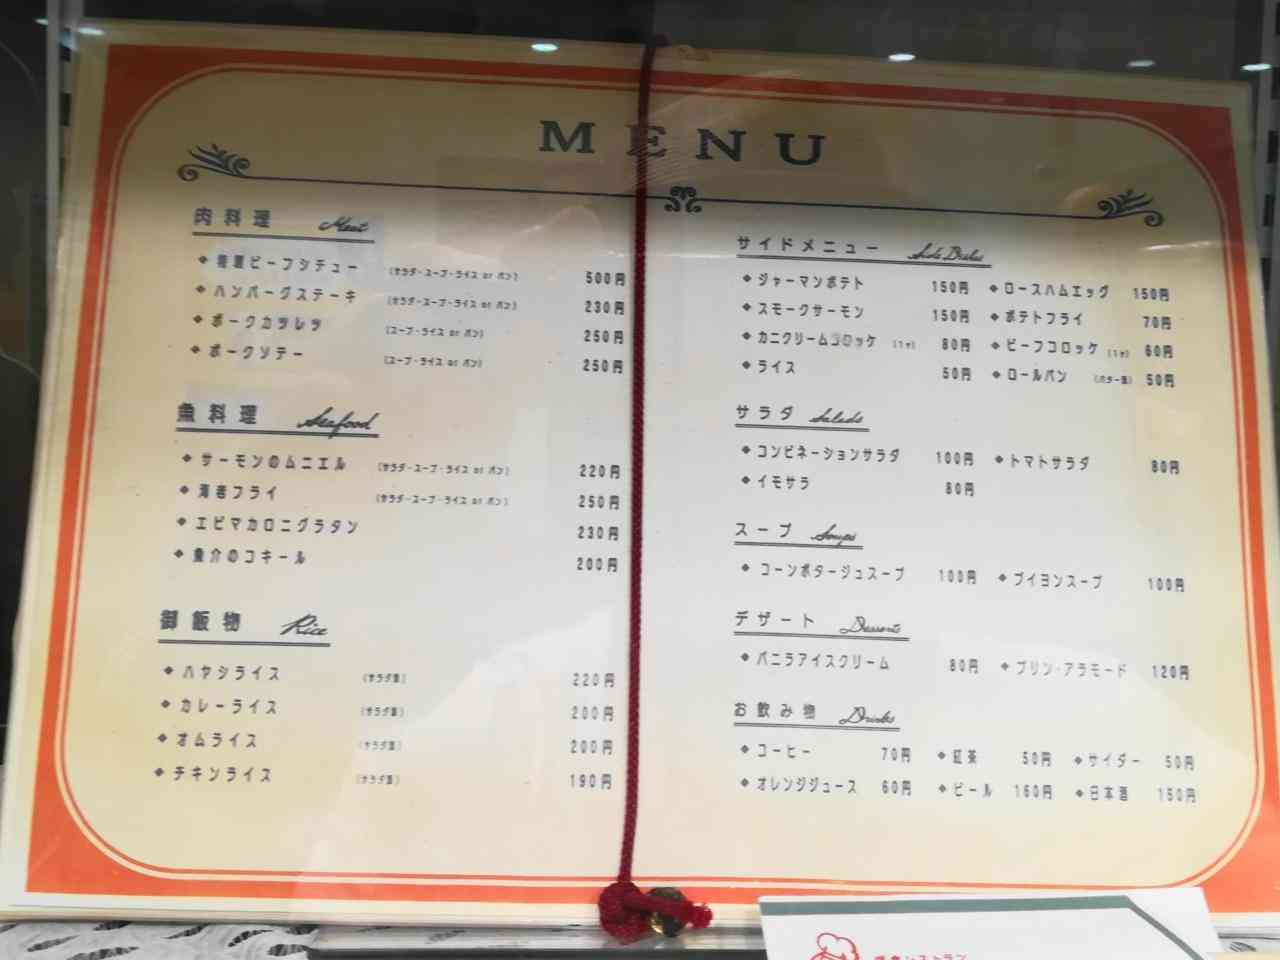 MENU
肉料理 Meat
◆特選ビーフシチュー (サラダ・スープ・ライス or パン) 500円
◆ハンバーグステーキ (サラダ・スープ・ライス or パン) 230円
◆ポークカツレツ (スープ・ライス or パン) 250円
◆ポークソテー (スープ・ライス or パン) 250円
魚料理 Seafood
◆サーモンのムニエル (サラダ・スープ・ライス or パン) 220円
◆海老フライ (サラダ・スープ・ライス or パン) 250円
◆エビマカロニグラタン 230円
◆魚介のコキール 200円
御飯物 Rice
◆ハヤシライス (サラダ付) 220円
◆カレーライス (サラダ付) 200円
◆オムライス (サラダ付) 200円
◆チキンライス (サラダ付) 190円
サイドメニュー Side Dishes
◆ジャーマンポテト 150円 ◆ロースハムエッグ 150円
◆スモークサーモン 150円 ◆ポテトフライ 70円
◆カニクリームコロッケ (1ヶ) 80円 ◆ビーフコロッケ (1ヶ) 60円
◆ライス 50円 ◆ロールパン (バター付) 50円
サラダ Salads
◆コンビネーションサラダ 100円 ◆トマトサラダ 80円
◆イモサラ 80円
スープ Soups
◆コーンポタージュスープ 100円 ◆ブイヨンスープ 100円
デザート Desserts
◆バニラアイスクリーム 80円 ◆プリン・アラモード 120円
お飲み物 Drinks
◆コーヒー 70円 ◆紅茶 50円 ◆サイダー 50円
◆オレンジジュース 60円 ◆ビール 160円 ◆日本酒 150円